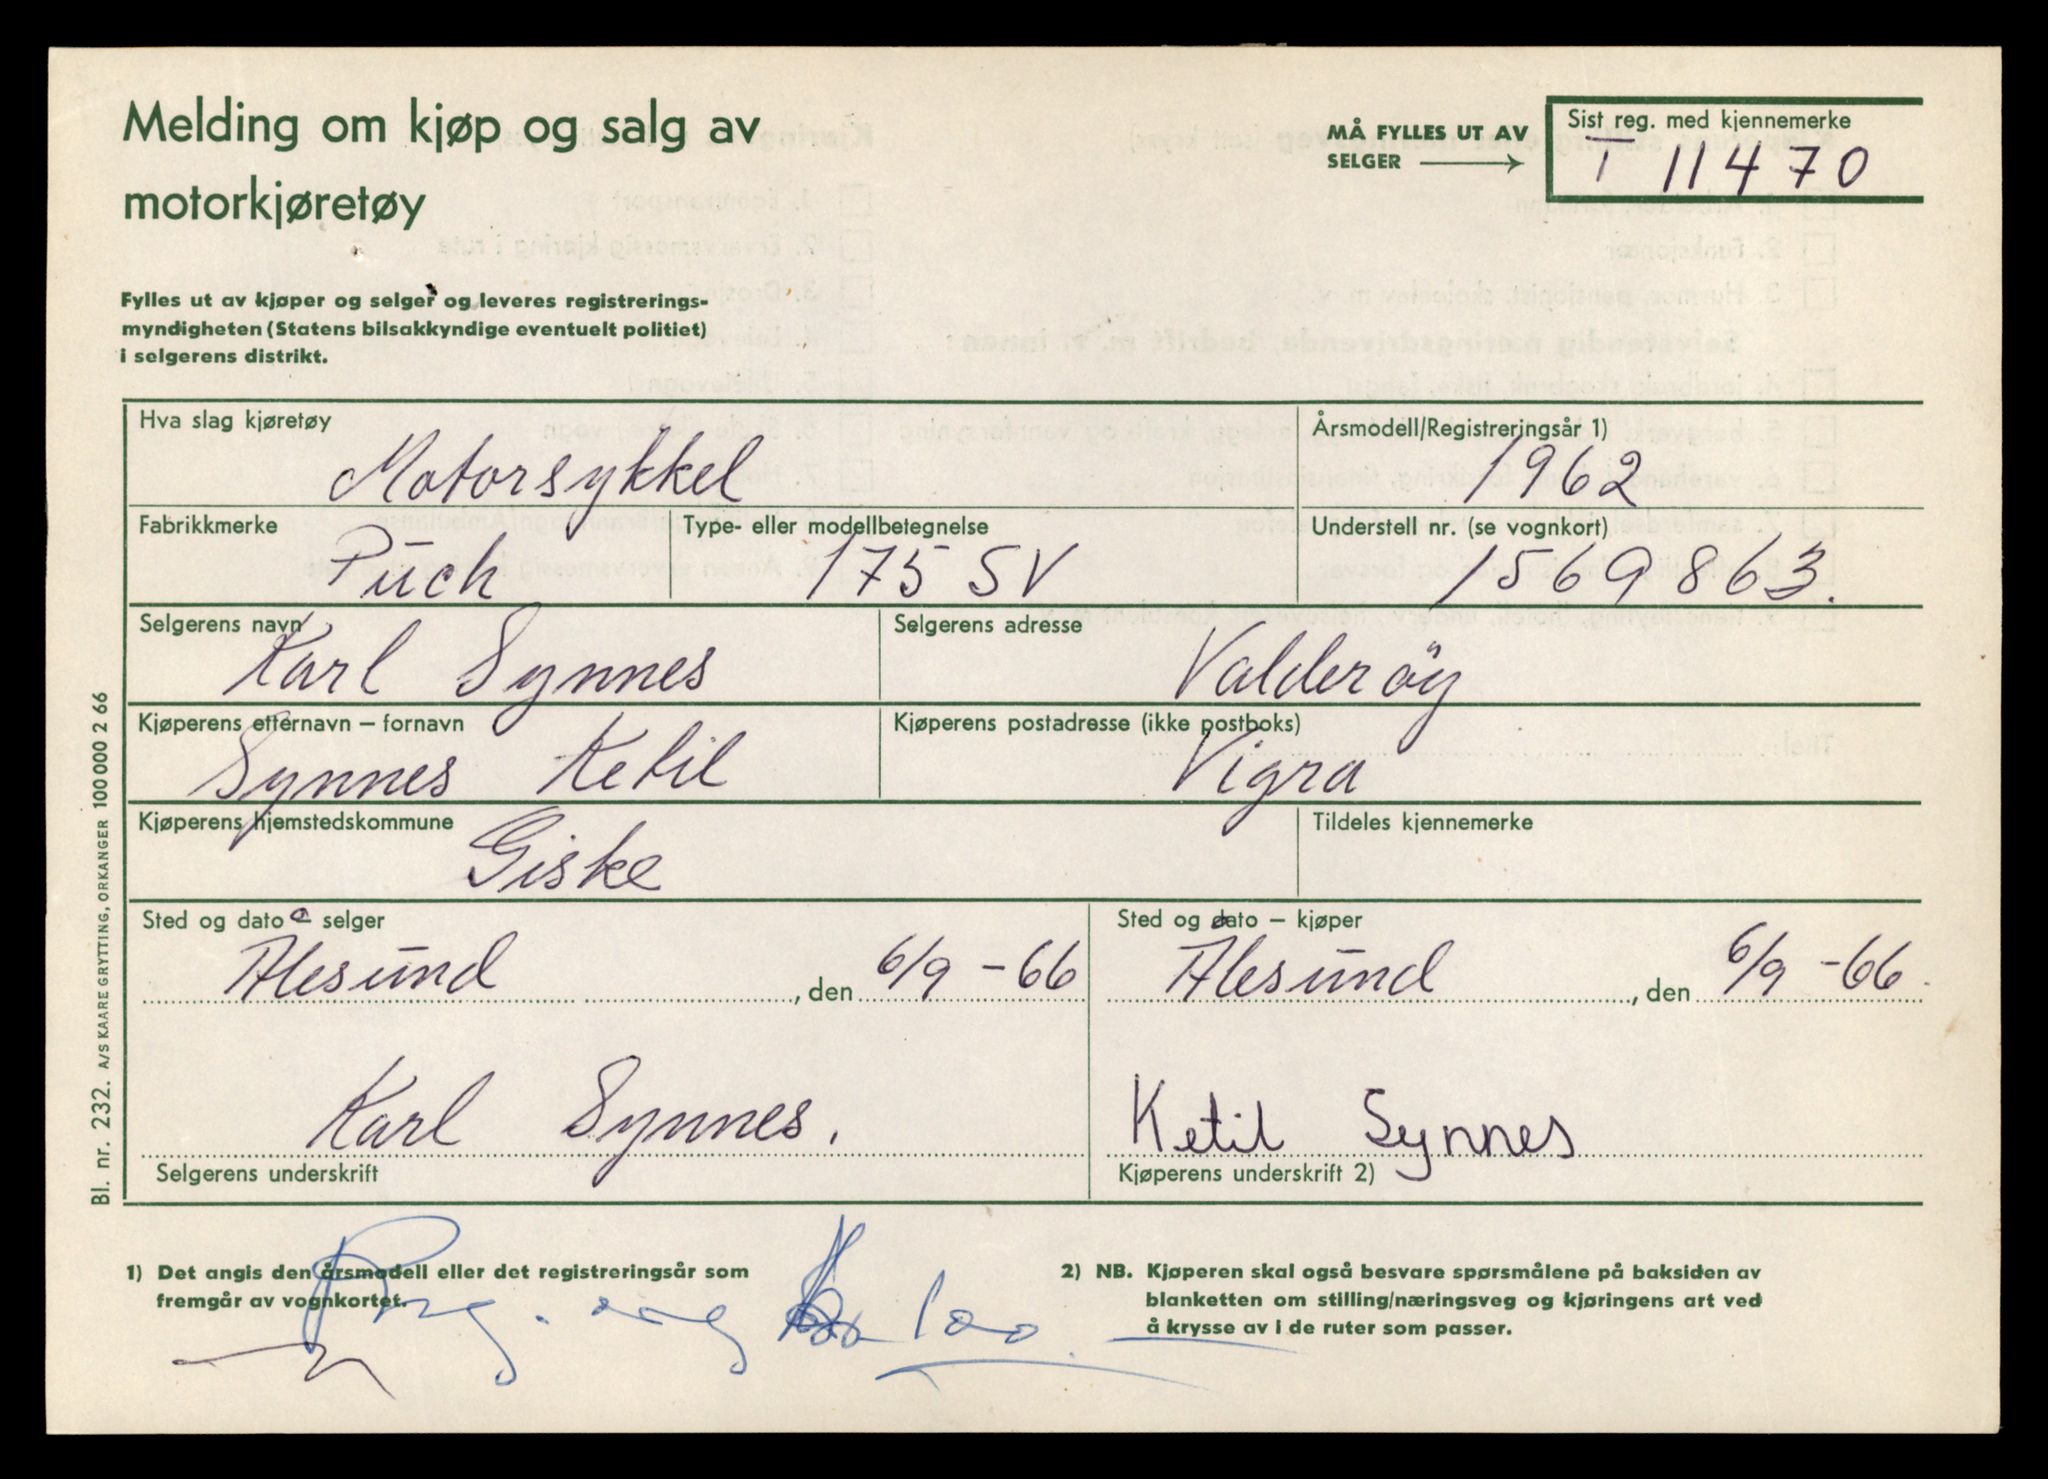 Melding om kjøp og salg av
motorkjøretøy
MÅ FYLLES UT AV
SELGER
Sist reg. med kjennemerke
T 11470
Fylles ut av kjøper og selger og leveres registrerings-
myndigheten (Statens bilsakkyndige eventuelt politiet)
i selgerens distrikt.
Hva slag kjøretøy
Motorsykkel
Årsmodell/Registreringsår 1)
1962
Fabrikkmerke
Puch
Type- eller modellbetegnelse
175 SV
Understell nr. (se vognkort)
1569863.
Selgerens navn
Karl Synnes
Selgerens adresse
Valderøy
Kjøperens etternavn – fornavn
Synnes Ketil
Kjøperens postadresse (ikke postboks)
Vigra
Kjøperens hjemstedskommune
Giske
Tildeles kjennemerke
Sted og dato – selger
Ålesund, den 6/9 - 66
Sted og dato – kjøper
Ålesund, den 6/9 - 66.
Karl Synnes.
Selgerens underskrift
Ketil Synnes
Kjøperens underskrift 2)
1) Det angis den årsmodell eller det registreringsår som
fremgår av vognkortet.
2) NB. Kjøperen skal også besvare spørsmålene på baksiden av
blanketten om stilling/næringsveg og kjøringens art ved
å krysse av i de ruter som passer.
Bl. nr. 232. A/S KAARE GRYTTING, ORKANGER 100 000 2 66